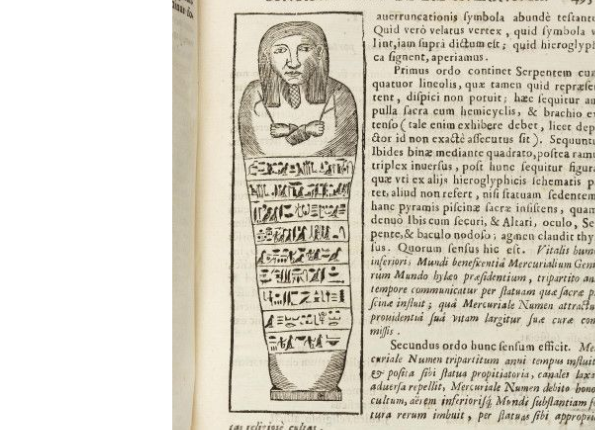 auerruncationis ſymbola abundè teſtantu
Quid verò velatus vertex, quid ſymbola v
lint, iam ſuprà dictum eſt; quid hieroglyph
ca ſignent, aperiamus.
Primus ordo continet Serpentem cum
quatuor lineolis, quæ tamen quid repræſen
tent, diſpici non potuit; hæc ſequitur au
pulla ſacra cum hemicyclis, & brachio ex
tenſo (tale enim exhibere debet, licet depi
ctor id non exactè aſſecutus ſit). Sequuntu
Ibides binæ mediante quadrato, poſtea ramu
triplex inuerſus, poſt hunc ſequitur figura
quæ vti ex alijs hieroglyphicis ſchematis pa
tet, aliud non refert, niſi ſtatuam ſedentem
hanc pyramis piſcinæ ſacræ inſiſtens, quam
denuo Ibis cum ſecuri, & Altari, oculo, Ser
pente, & baculo nodoſo; agmen claudit thy
ſus. Quorum ſenſus hic eſt. Vitalis hum
inferioris Mundi beneficentia Mercurialium Geni
rum Mundo hylæo præſidentium, tripartito an
tempore communicatur per ſtatuam quæ ſacræ pi
ſcinæ inſtuit; quâ Mercuriale Numen attractu
prouidentiâ ſuâ vitam largitur ſuæ curæ com
miſſis.
Secundus ordo hunc ſenſum efficit. Mer
curiale Numen tripartitum anni tempus influit
& poſita ſibi ſtatua propitiatoria, canales laxa
aduerſa repellit, Mercuriale Numen debito hono
cultum, aërem inferioriſq́ Mundi ſubſtantiam fu
tura rerum imbuit, per ſtatuas ſibi appropri
tas religiosè cultas.